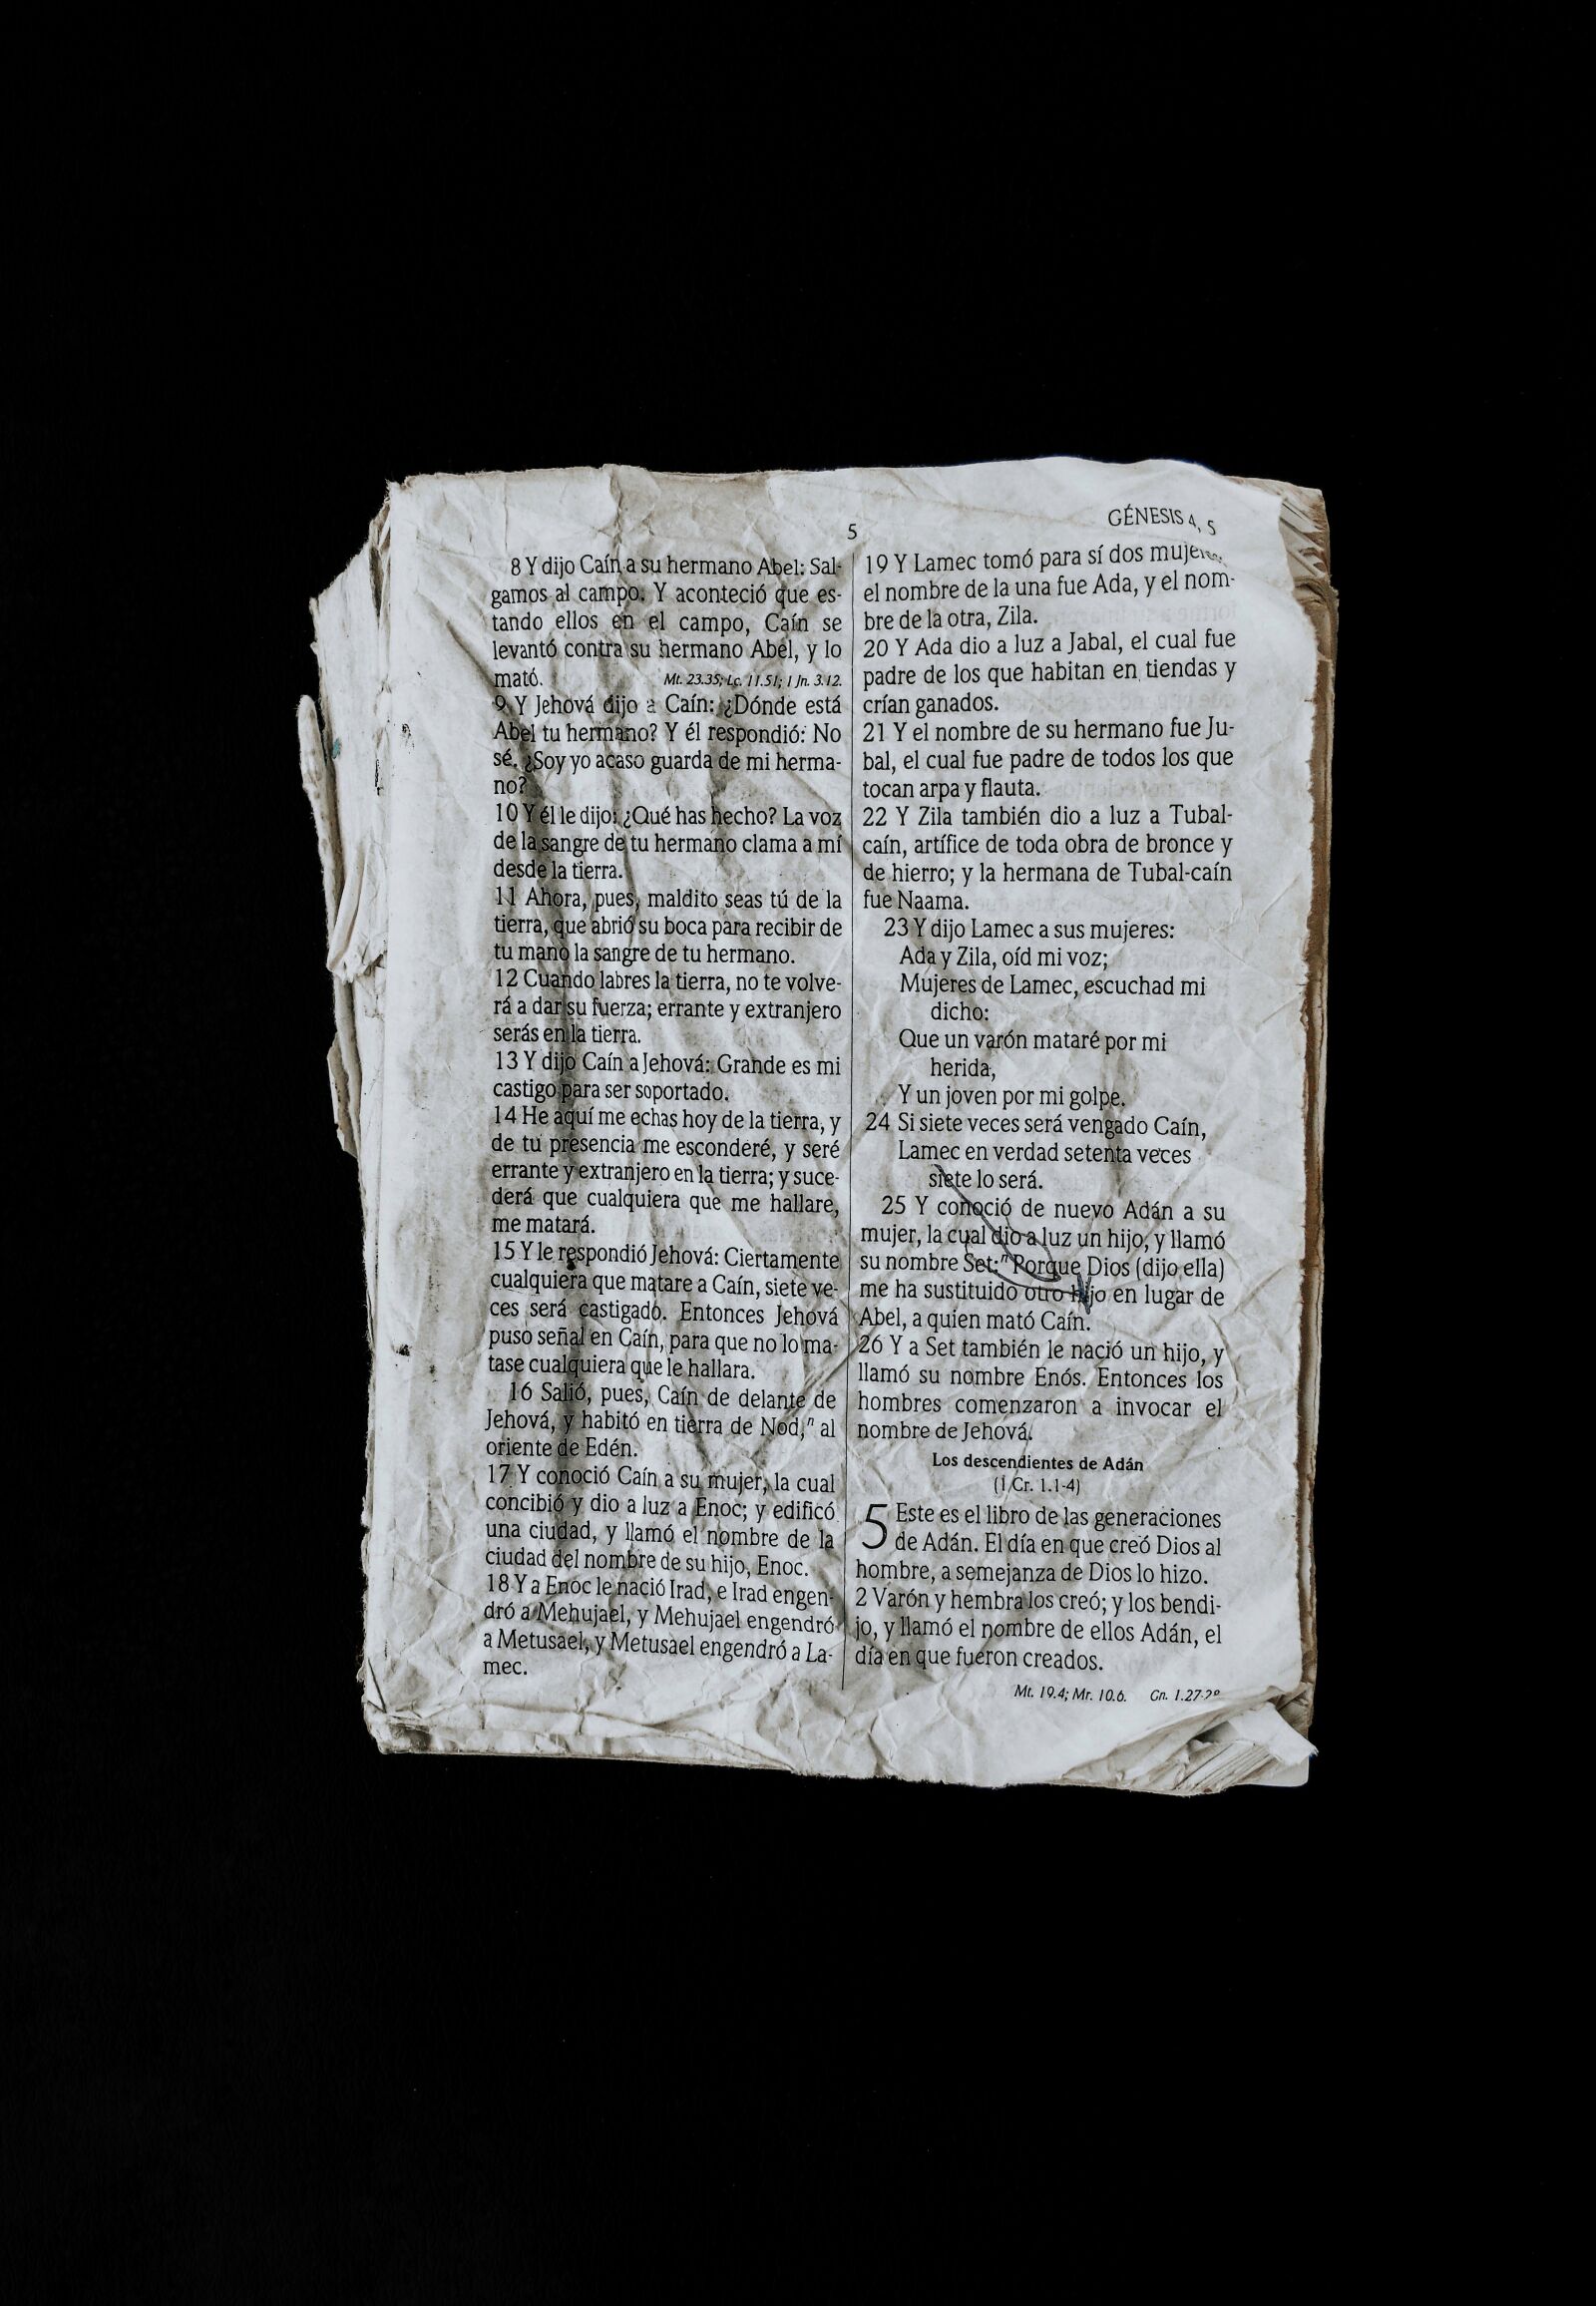 5
GÉNESIS 4, 5
8 Y dijo Caín a su hermano Abel: Sal-
gamos al campo. Y aconteció que es-
tando ellos en el campo, Caín se
levantó contra su hermano Abel, y lo
mató. Mt. 23.35; Lc. 11.51; 1 Jn. 3.12.
9 Y Jehová dijo a Caín: ¿Dónde está
Abel tu hermano? Y él respondió: No
sé. ¿Soy yo acaso guarda de mi herma-
no?
10 Y él le dijo: ¿Qué has hecho? La voz
de la sangre de tu hermano clama a mí
desde la tierra.
11 Ahora, pues, maldito seas tú de la
tierra, que abrió su boca para recibir de
tu mano la sangre de tu hermano.
12 Cuando labres la tierra, no te volve-
rá a dar su fuerza; errante y extranjero
serás en la tierra.
13 Y dijo Caín a Jehová: Grande es mi
castigo para ser soportado.
14 He aquí me echas hoy de la tierra, y
de tu presencia me esconderé, y seré
errante y extranjero en la tierra; y suce-
derá que cualquiera que me hallare,
me matará.
15 Y le respondió Jehová: Ciertamente
cualquiera que matare a Caín, siete ve-
ces será castigado. Entonces Jehová
puso señal en Caín, para que no lo ma-
tase cualquiera que le hallara.
16 Salió, pues, Caín de delante de
Jehová, y habitó en tierra de Nod,ⁿ al
oriente de Edén.
17 Y conoció Caín a su mujer, la cual
concibió y dio a luz a Enoc; y edificó
una ciudad, y llamó el nombre de la
ciudad del nombre de su hijo, Enoc.
18 Y a Enoc le nació Irad, e Irad engen-
dró a Mehujael, y Mehujael engendró
a Metusael, y Metusael engendró a La-
mec.
19 Y Lamec tomó para sí dos
el nombre de la una fue Ada, y el nom-
bre de la otra, Zila.
20 Y Ada dio a luz a Jabal, el cual fue
padre de los que habitan en tiendas y
crían ganados.
21 Y el nombre de su hermano fue Ju-
bal, el cual fue padre de todos los que
tocan arpa y flauta.
22 Y Zila también dio a luz a Tubal-
caín, artífice de toda obra de bronce y
de hierro; y la hermana de Tubal-caín
fue Naama.
23 Y dijo Lamec a sus mujeres:
Ada y Zila, oíd mi voz;
Mujeres de Lamec, escuchad mi
dicho:
Que un varón mataré por mi
herida,
Y un joven por mi golpe.
24 Si siete veces será vengado Caín,
Lamec en verdad setenta veces
siete lo será.
25 Y conoció de nuevo Adán a su
mujer, la cual dio a luz un hijo, y llamó
su nombre Set:ⁿ Porque Dios (dijo ella)
me ha sustituido otro hijo en lugar de
Abel, a quien mató Caín.
26 Y a Set también le nació un hijo, y
llamó su nombre Enós. Entonces los
hombres comenzaron a invocar el
nombre de Jehová.
Los descendientes de Adán
(1 Cr. 1.1-4)
5 Este es el libro de las generaciones
de Adán. El día en que creó Dios al
hombre, a semejanza de Dios lo hizo.
2 Varón y hembra los creó; y los bendi-
jo, y llamó el nombre de ellos Adán, el
día en que fueron creados.
Mt. 19.4; Mr. 10.6. Gn. 1.27-28